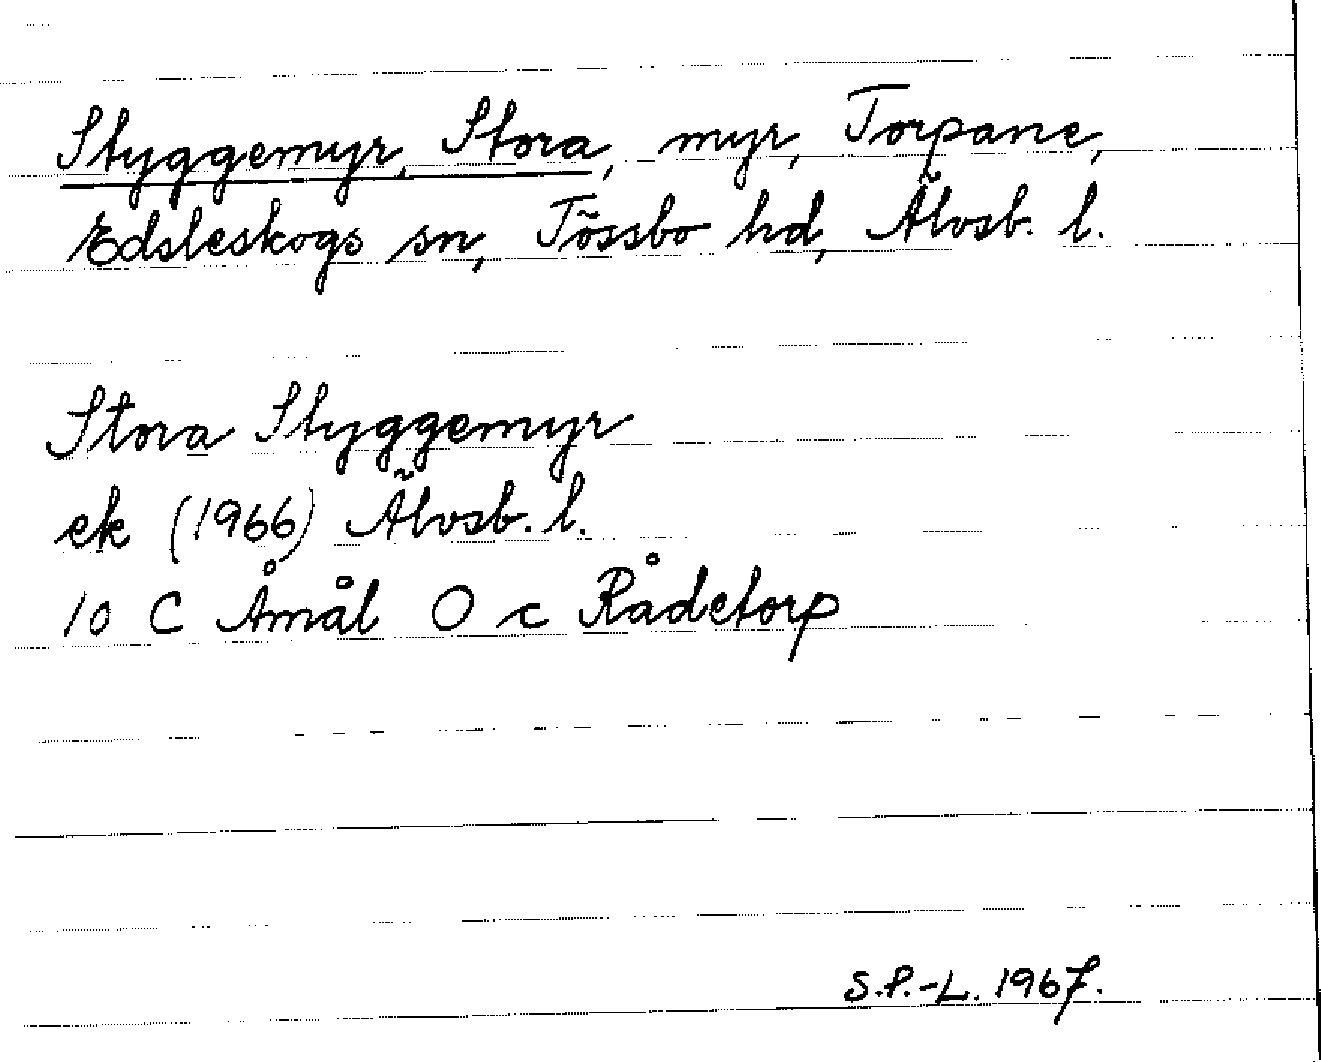 Styggemyr, Stora, myr, Torpane,
Edsleskogs sn, Tössbo hd, Älvsb. l.
Stora Styggemyr
ek (1966) Älvsb. l.
10 C Åmål O c Rådetorp
S.P.-L. 1967.